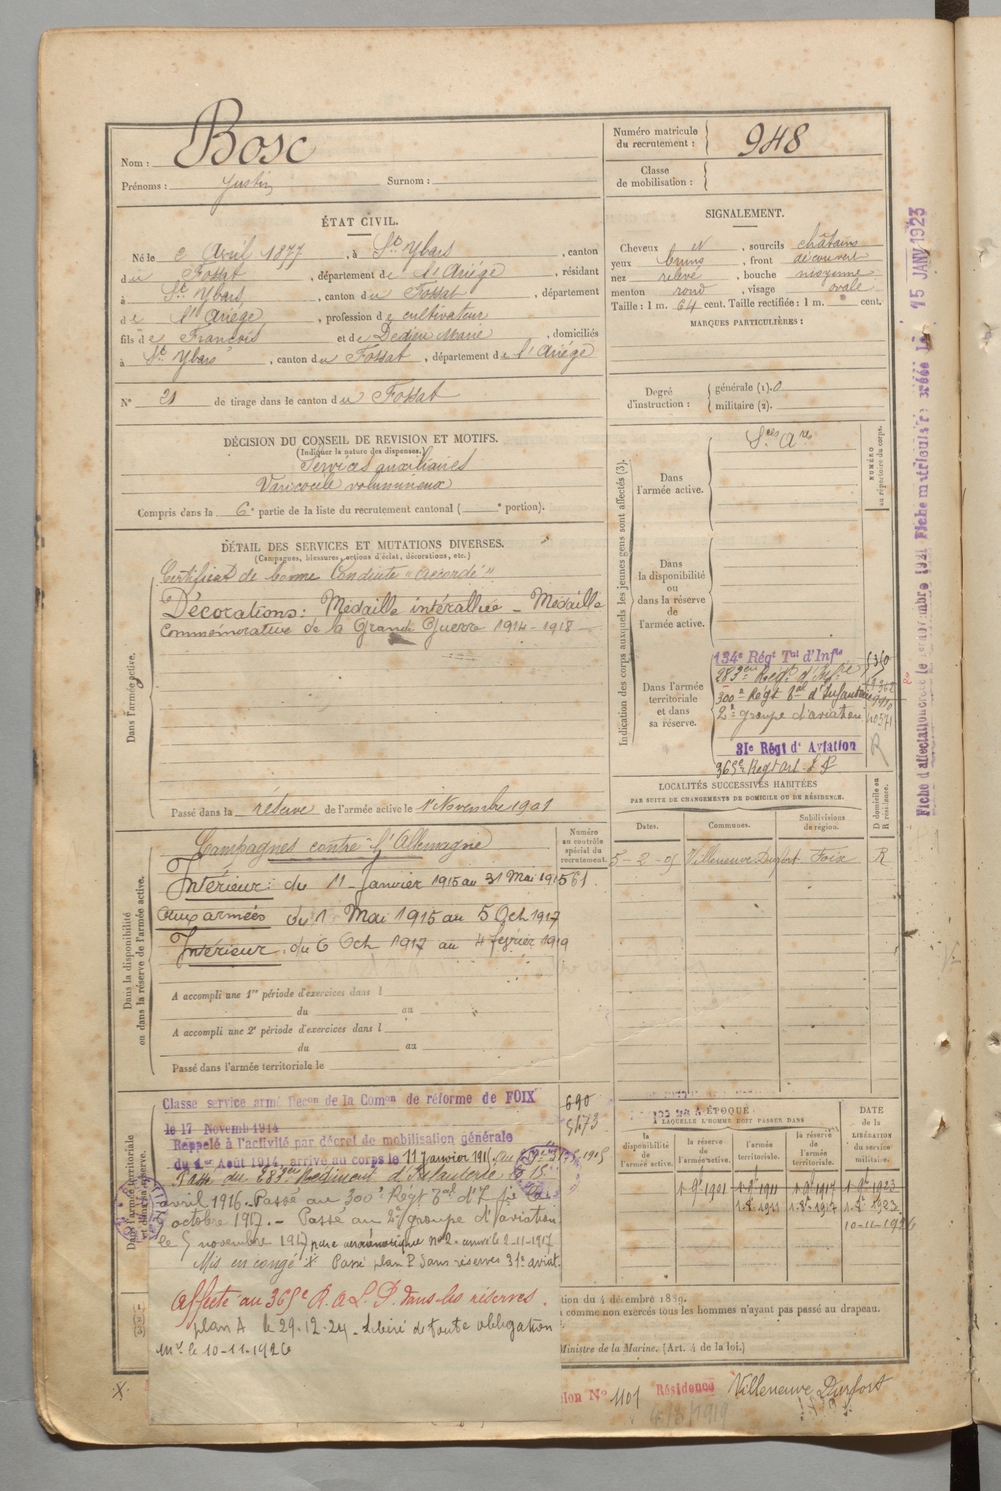 Nom : Bosc
Prénoms : Justin Surnom :
Numéro matricule du recrutement : 948
Classe de mobilisation :
ÉTAT CIVIL.
Né le 2 Avril 1877, à St Ybars, canton
du Fossat, département de l'Ariège, résidant
à St Ybars, canton du Fossat, département
de l'Ariège, profession de cultivateur
fils de François et de Dedieu Marie, domiciliés
à St Ybars, canton du Fossat, département de l'Ariège
N° 21 de tirage dans le canton du Fossat
SIGNALEMENT.
Cheveux et, sourcils châtains
yeux bruns, front découvert
nez relevé, bouche moyenne
menton rond, visage ovale
Taille : 1 m. 64 cent. Taille rectifiée : 1 m. cent.
MARQUES PARTICULIÈRES :
Degré d'instruction : générale (1). 0
militaire (2).
DÉCISION DU CONSEIL DE REVISION ET MOTIFS.
(Indiquer la nature des dispenses.)
Services auxiliaires
Varicocèle volumineux
Compris dans la 6e partie de la liste du recrutement cantonal ( e portion).
DÉTAIL DES SERVICES ET MUTATIONS DIVERSES.
(Campagnes, blessures, actions d'éclat, décorations, etc.)
Dans l'armée active.
Certificat de bonne Conduite "accordé"
Décorations : Médaille interalliée - Médaille
Commémorative de la Grande Guerre 1914-1918
Passé dans la réserve de l'armée active le 1er Novembre 1901
Indication des corps auxquels les jeunes gens sont affectés (3).
NUMÉRO au répertoire du corps.
Dans l'armée active.
Sces Ares
Dans la disponibilité ou dans la réserve de l'armée active.
Dans l'armée territoriale et dans sa réserve.
134e Régt Tal d'Infie
283eme Régt d'Infie
300e Régt Tal d'Infanterie
2e groupe d'aviation
31e Régt d'Aviation
365e Regt Art. L P
R
LOCALITÉS SUCCESSIVES HABITÉES
PAR SUITE DE CHANGEMENTS DE DOMICILE OU DE RÉSIDENCE.
Dates. Communes. Subdivisions de région. D domicile ou R résidence.
5-2-05 Villeneuve Durfort Foix R
Dans la disponibilité ou dans la réserve de l'armée active.
Numéro au contrôle spécial du recrutement.
Campagnes contre l'Allemagne
Intérieur : du 11 Janvier 1915 au 31 Mai 1915
561
aux armées du 1 Mai 1915 au 5 Oct 1917
Intérieur : du 6 Oct 1917 au 4 février 1919
A accompli une 1re période d'exercices dans l
du au
A accompli une 2e période d'exercices dans l
du au
Passé dans l'armée territoriale le
Dans l'armée territoriale et dans sa réserve.
Classe service armé Décon de la Comon de réforme de FOIX
690
le 17 Novemb 1914
5473
Rappelé à l'activité par décret de mobilisation générale
du 1er Août 1914, arrivé au corps le 11 janvier 1915
Passé au 283eme Régiment d'Infanterie le 15
avril 1916. Passé au 300e Régt Tal d'Ifie le
octobre 1917. - Passé au 2e groupe d'aviation
le 5 novembre 1917 parc aéronautique n° 2 - arrivé le 2-11-1917
Mis en congé Passé plan P. Sans réserves 31e aviat.
Affecté au 365e R.A.L.P. dans les réserves.
plan A le 29-12-24 - Libéré de toute obligation
mre le 10-11-1926
ÉPOQUE À LAQUELLE L'HOMME DOIT PASSER DANS
la disponibilité de l'armée active.
la réserve de l'armée active.
l'armée territoriale.
la réserve de l'armée territoriale.
DATE de la LIBÉRATION du service militaire.
1-9bre 1901 1-9bre 1911 1-9bre 1917 1-9bre 1923
10-11-1926
tion du 4 décembre 1889.
comme non exercés tous les hommes n'ayant pas passé au drapeau.
Ministre de la Marine. (Art. 4 de la loi.)
ion N° 1101 Résidence Villeneuve Durfort
Fiche d'affectation
15 JANV 1923